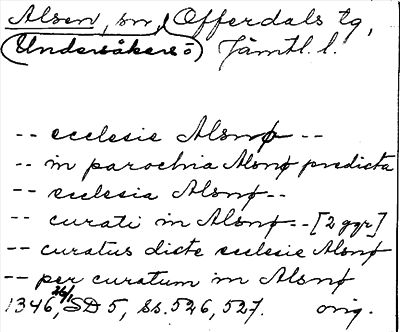 Alsen, sn, Offerdals tg,
(Undersåkers ö) Jämtl. l.
-- ecclesie Alsnø --
-- in parochia Alsnø predicta
-- ecclesia Alsnø --
-- curati in Alsnø -- [2 ggr]
-- curatus dicte ecclesie Alsnø
-- per curatum in Alsnø
1346, 26/1 SD 5, ss. 526, 527. orig.